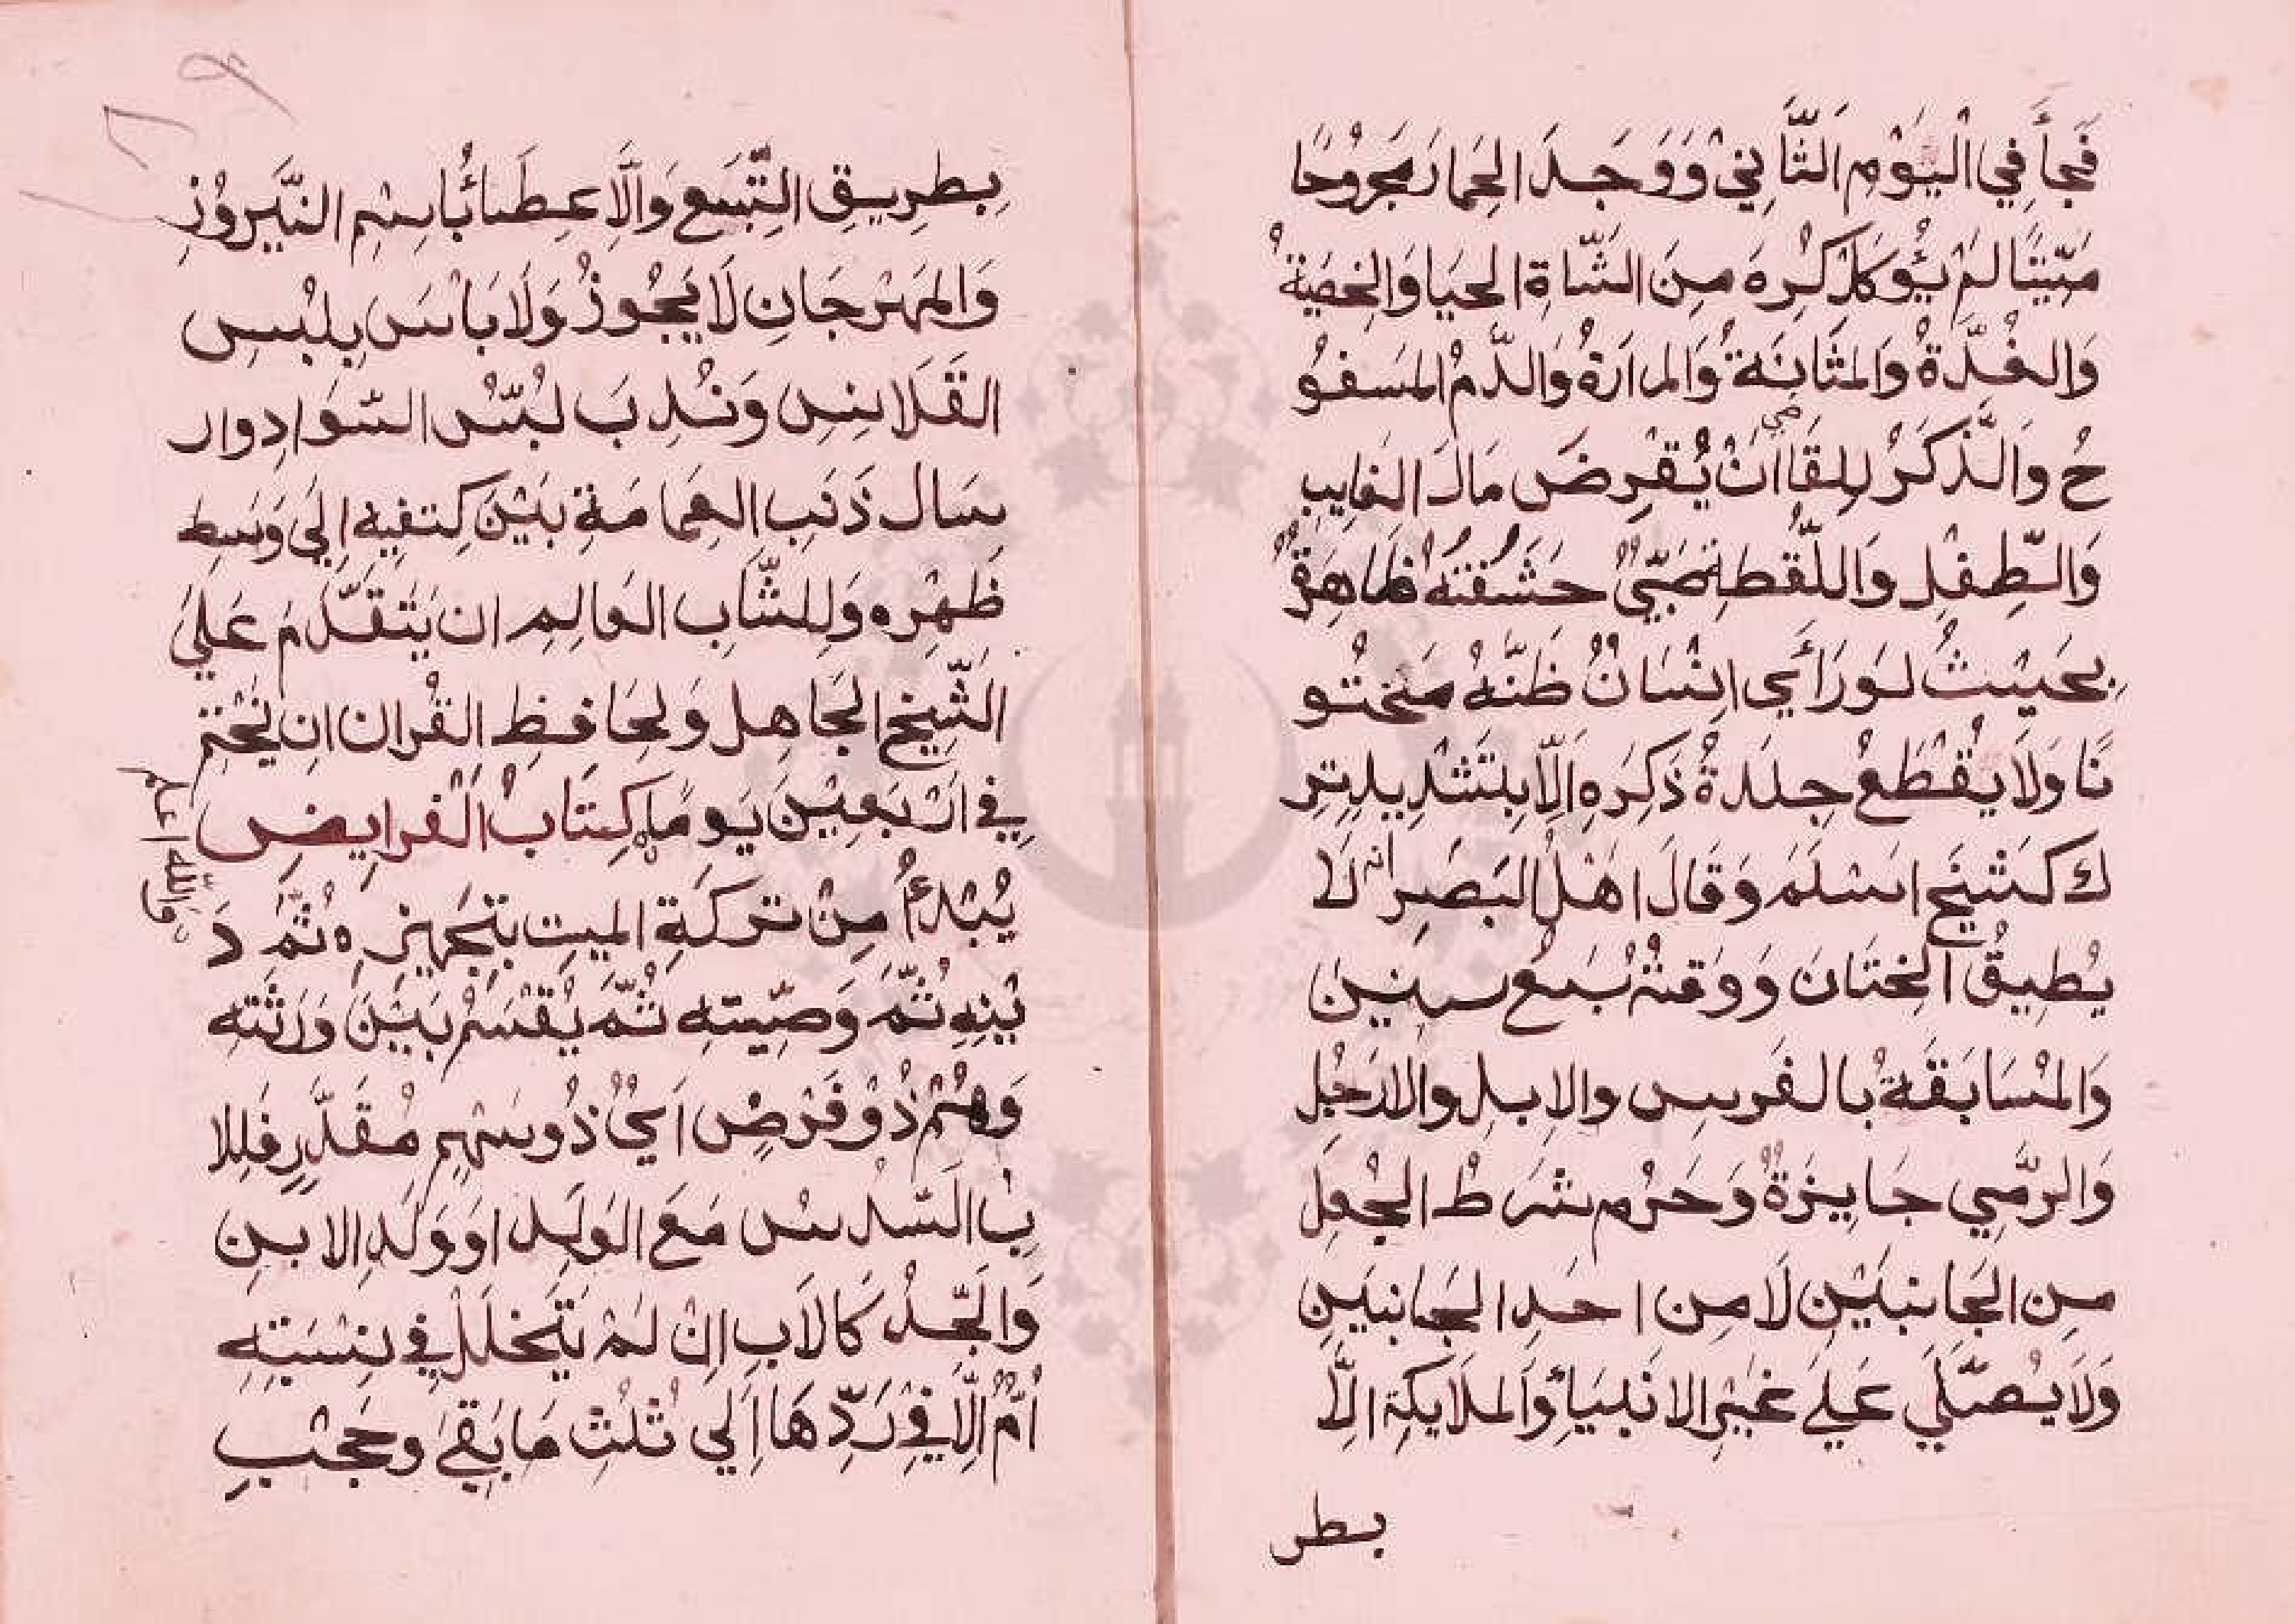 فَجأَ فِي الْيَوْمِ الثَّانِيْ وَوَجَدَ الحِمارَ مَجرُوْحًا
مَيّتًا لمْ يُؤكَلْ كُرِهَ مِنَ الشَّاةِ الحيَا وَالخِصَيةُ
وَالغُدَّةُ وَالمثَانَةُ وَالمرَارَةُ وَالدَّمُ المَسفُو
حُ وَالذَّكَرُ لِلقَاضي أنْ يُقرِضَ مَالَ الغَايِبِ
وَالطِّفْلِ وَاللُّقطِةِ صَبِيٌّ حَشَفَتُهُ ظَاهِرَةٌ
بِحَيْثُ لوَ رَأَي اِنْسَانٌ ظَنَّهُ مَختُو
نًا وَلَا يُقْطَعُ جِلدَةُ ذَكَرِهِ إلَّا بِتَشْدِيدٍ تِر
ك كَشَيْخٍ اَسْلَمَ وَقَالَ اَهْلُ البَصَرِ انه لَا
يُطِيقُ الخِتَانَ وَوَقتُهُ سَبعُ سِنِيْنَ
وَالمُسَابَقَةُ بالفَرسِ والاِبلِ والارْجُلِ
وَالرَّمِي جَايِزَةٌ وَحَرُم شَرطُ الجُعلِ
مِن الجَانبَيْنِ لَا مِن اَحَدِ الجَانبَينِ
وَلَا يُصَلَّي عَليَ غَيْرِ الانبَياءِ وَالملَايكَةِ اِلَّا
بطر
بِطَرِيقِ التَّبَعِ وَالْاِعطَائُ باسْمِ النَّيروُزِ
وَالمهْرَجَانِ لَا يَجُوزُ وَلَا بَاْسَ بِلبْسِ
القَلَانِسِ وَنُدِبَ لُبْسُ السَّوَادِ وار
سَال ذَنَبِ العِمَامَةِ بَيْنَ كِتفيهِ اِلَي وَسَطِ
ظَهْرِه وَلِلشَّابِ العَالِمِ ان يَتَقَدَّمَ عَلَيَ
الشَّيخِ الجَاهِل وَلِحَافِظِ القُران ان يَخْتِمَ
فِي اَرْبَعِيْنَ يَومًا كِتَابُ الفَرايِضِ
والله اعلم
يُبْدَءُ مِنْ تَركَةِ الميتِ بِتَجهِيزِهِ ثُمَّ دَ
يْنِهِ ثُمَّ وَصِيّتِهِ ثُمَّ يُقْسَمُ بَيْنَ وَرَثَتِهِ
وَهُمْ ذُوْ فَرْضٍ اَيْ ذُو سَهْمٍ مُقَدَّرٍ فَلِلا
بِ السُّدسُ مَعَ الوَلَدِ اوَ وَلَدِ الابنِ
وَالجَدُّ كَالاَبِ اِنْ لَمْ يَتَخَلَّلْ فِي نِسْبَتِهِ
اُمٌّ اِلَّا فِي رَدِّهَا اِلَي ثُلُثِ مَا بَقِيَ وحَجْبِ